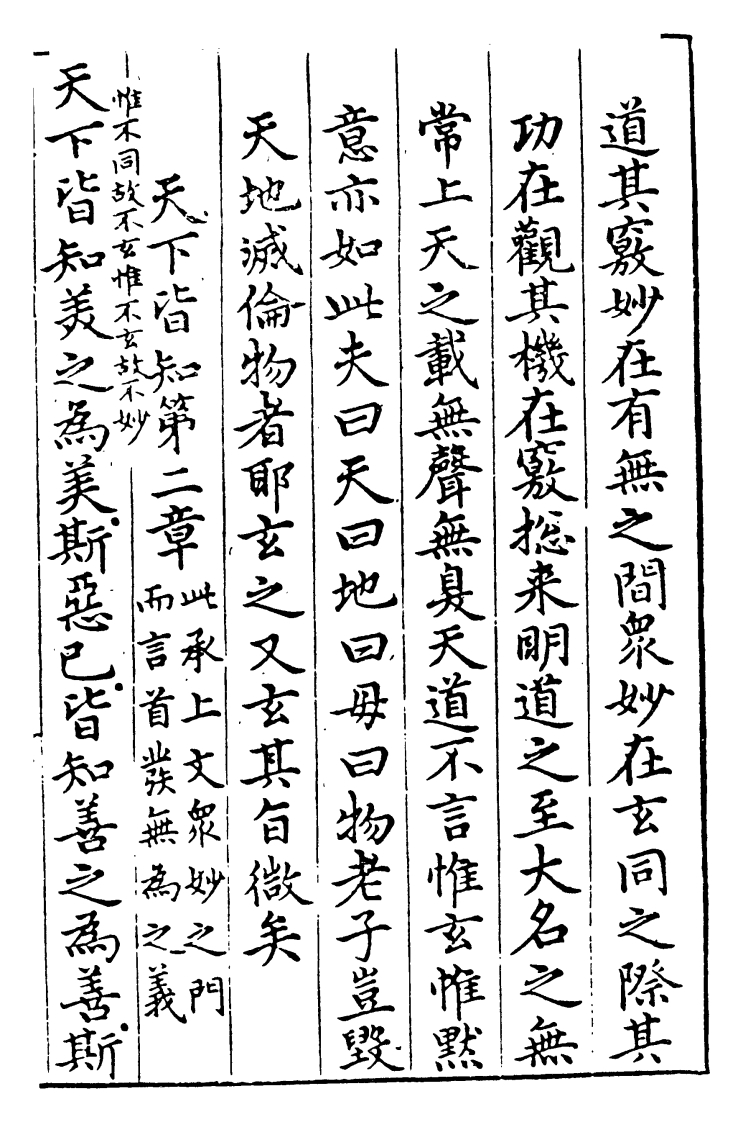 道其竅妙在有無之間眾妙在玄同之際其
功在觀其機在竅揔来明道之至大名之無
常上天之載無聲無臭天道不言惟玄惟默
意亦如此夫曰天曰地曰毋曰物老子豈毀
天地滅倫物者耶玄之又玄其旨微矣
天下皆知第二章
此承上文眾妙之門
而言首發無為之義
惟不同故不玄惟不玄故不妙
天下皆知美之為美斯惡已皆知善之為善斯